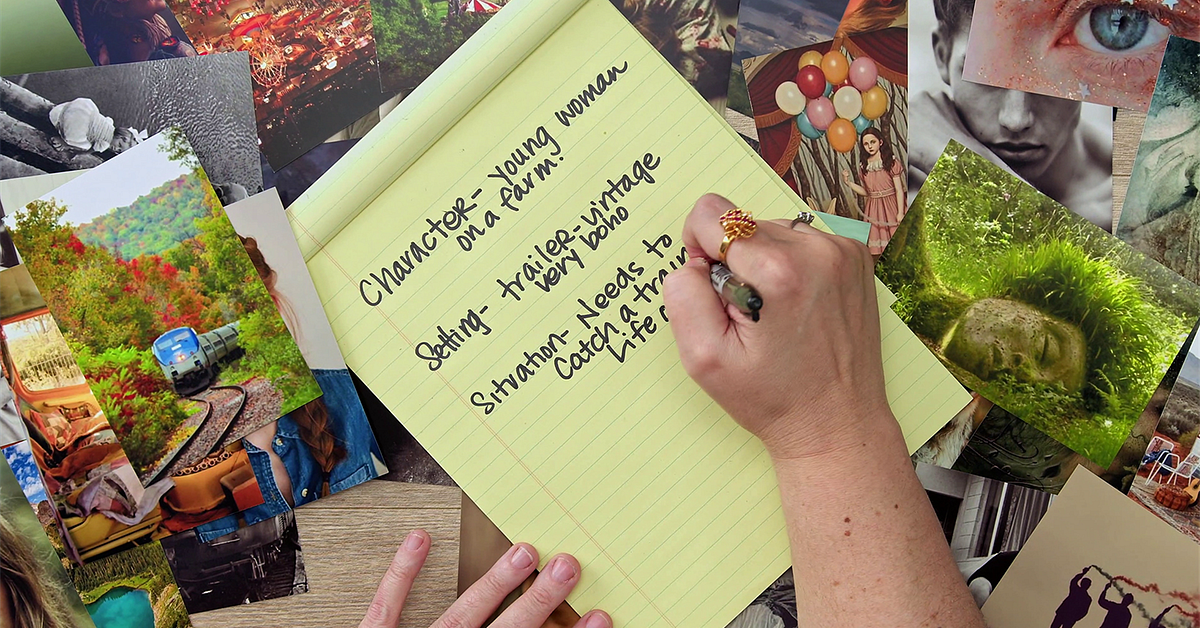 Character- Young woman
on a farm.
Setting- trailer-vintage
very boho
Situation- Needs to
Catch a train
Life